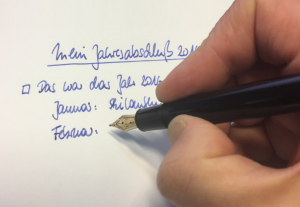 Mein Jahresabschluß 201
Das war das Jahr 2016
Januar:
Februar: